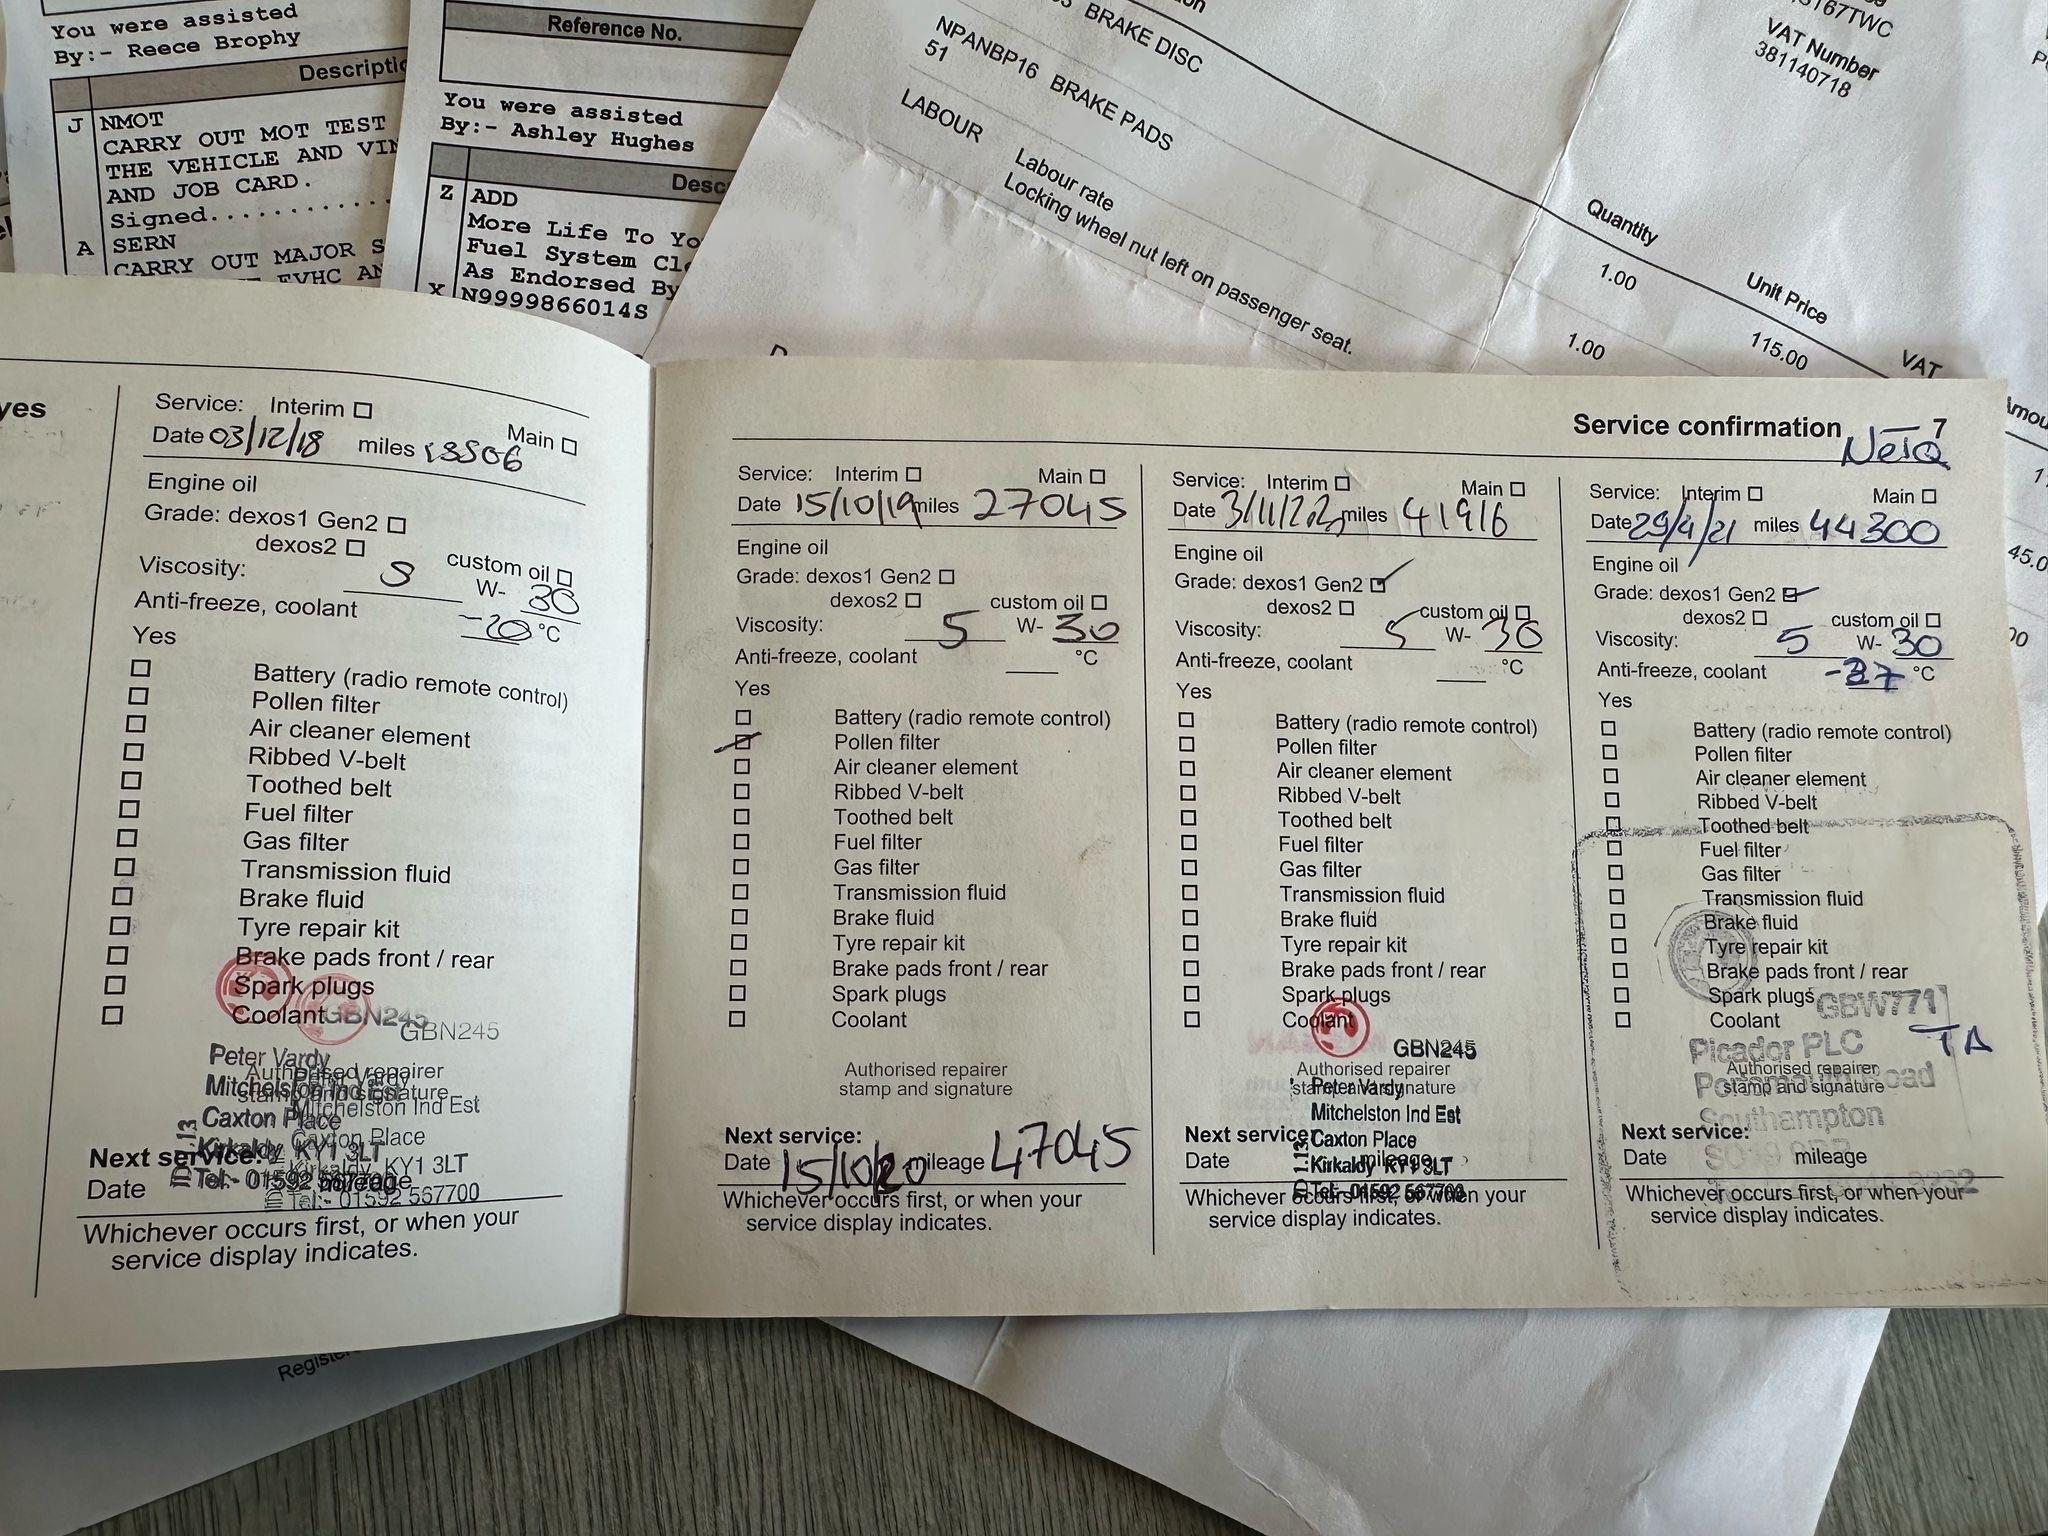 You were assisted
By:- Reece Brophy
J NMOT
CARRY OUT MOT TEST
THE VEHICLE AND VIN
AND JOB CARD.
Signed..............
A SERN
CARRY OUT MAJOR S
EVHC AN
Reference No.
You were assisted
By:- Ashley Hughes
Z ADD
More Life To Yo
Fuel System Cle
As Endorsed By
X N9999866014S
BRAKE DISC
NPANBP16 BRAKE PADS
51
LABOUR
Labour rate
Locking wheel nut left on passenger seat.
Quantity
1.00
1.00
Unit Price
115.00
VAT
VAT Number
381140718
yes
Service: Interim
Main
Date 03/12/18 miles
Engine oil
Grade: dexos1 Gen2
dexos2
custom oil
Viscosity: 5 W- 30
Anti-freeze, coolant -20 °C
Yes
Battery (radio remote control)
Pollen filter
Air cleaner element
Ribbed V-belt
Toothed belt
Fuel filter
Gas filter
Transmission fluid
Brake fluid
Tyre repair kit
Brake pads front / rear
Spark plugs
Coolant
GBN245
GBN245
Authorised repairer
stamp and signature
Peter Vardy
Mitchelston Ind Est
Caxton Place
Kirkaldy KY1 3LT
Tel:- 01592 567700
Next service:
Date mileage
Whichever occurs first, or when your
service display indicates.
Service confirmation 7
Service: Interim Main
Date 15/10/19 miles 27045
Engine oil
Grade: dexos1 Gen2
dexos2 custom oil
Viscosity: 5 W- 30
Anti-freeze, coolant °C
Yes
Battery (radio remote control)
Pollen filter
Air cleaner element
Ribbed V-belt
Toothed belt
Fuel filter
Gas filter
Transmission fluid
Brake fluid
Tyre repair kit
Brake pads front / rear
Spark plugs
Coolant
Authorised repairer
stamp and signature
Next service:
Date 15/10/20 mileage 47045
Whichever occurs first, or when your
service display indicates.
Service: Interim Main
Date miles 41916
Engine oil
Grade: dexos1 Gen2
dexos2 custom oil
Viscosity: 5 W- 30
Anti-freeze, coolant °C
Yes
Battery (radio remote control)
Pollen filter
Air cleaner element
Ribbed V-belt
Toothed belt
Fuel filter
Gas filter
Transmission fluid
Brake fluid
Tyre repair kit
Brake pads front / rear
Spark plugs
Coolant
GBN245
Authorised repairer
stamp and signature
Peter Vardy
Mitchelston Ind Est
Caxton Place
Kirkaldy KY1 3LT
Tel:- 01592 567700
Next service:
Date mileage
Whichever occurs first, or when your
service display indicates.
Service: Interim Main
Date 29/4/21 miles 44300
Engine oil
Grade: dexos1 Gen2
dexos2 custom oil
Viscosity: 5 W- 30
Anti-freeze, coolant -37 °C
Yes
Battery (radio remote control)
Pollen filter
Air cleaner element
Ribbed V-belt
Toothed belt
Fuel filter
Gas filter
Transmission fluid
Brake fluid
Tyre repair kit
Brake pads front / rear
Spark plugs
Coolant
GBW771
TA
Picador PLC
Portsmouth Road
Southampton
Authorised repairer
stamp and signature
Next service:
Date mileage
Whichever occurs first, or when your
service display indicates.